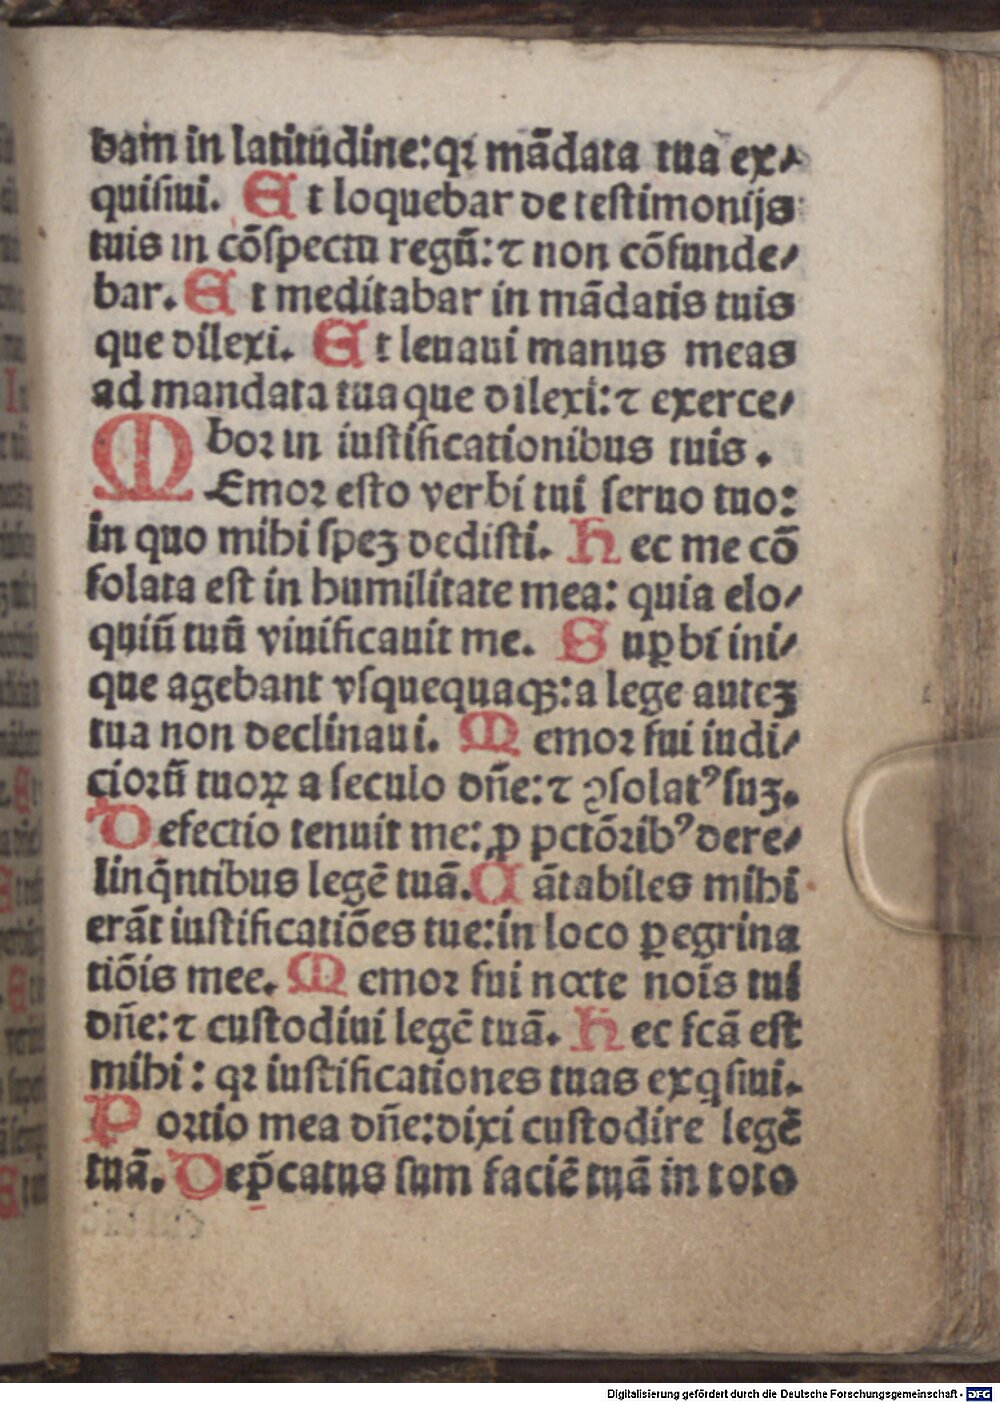 bam in latitudine: qꝛ mādata tua ex⸗
quisiui. Et loquebar de testimonijs
tuis in cōspectu regū: ⁊ non cōfunde⸗
bar. Et meditabar in mādatis tuis
que dilexi. Et leuaui manus meas
ad mandata tua que dilexi: ⁊ exerce⸗
boꝛ in iustificationibus tuis.
MEmoꝛ esto verbi tui seruo tuo:
in quo mihi speꝫ dedisti. Hec me cō
solata est in humilitate mea: quia elo⸗
quiū tuū viuificauit me. Suꝑbi ini⸗
que agebant vsquequaqꝫ: a lege auteꝫ
tua non declinaui. Memoꝛ fui iudi⸗
cioꝛū tuoꝝ a seculo dn̄e: ⁊ ꝯsolatꝰ suꝫ.
Defectio tenuit me: ꝓ pctōꝛibꝰ dere⸗
linq̄ntibus legē tuā. Cātabiles mihi
erāt iustificatiōes tue: in loco ꝑegrina
tiōis mee. Memoꝛ fui nocte nois̄ tui
dn̄e: ⁊ custodiui legē tuā. Hec fcā est
mihi: qꝛ iustificationes tuas exqsiui.
Poꝛtio mea dn̄e: dixi custodire legē
tuā. Dep̄catus sum faciē tuā in toto
Digitalisierung gefördert durch die Deutsche Forschungsgemeinschaft - DFG